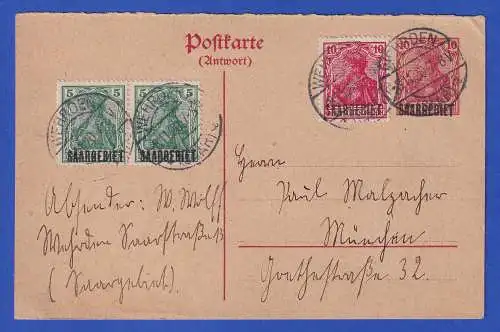 Postkarte
(Antwort)
5 5
SAARGEBIET SAARGEBIET
10
SAARGEBIET
10
SAARGEBIET
WEHRDEN
WEHRDEN
WEHRDEN
WEHRDEN
Herrn
Paul Malzacher
München
Goethestraße 32.
Absender: W. Wolff
Wehrden Saarstraße
(Saargebiet)